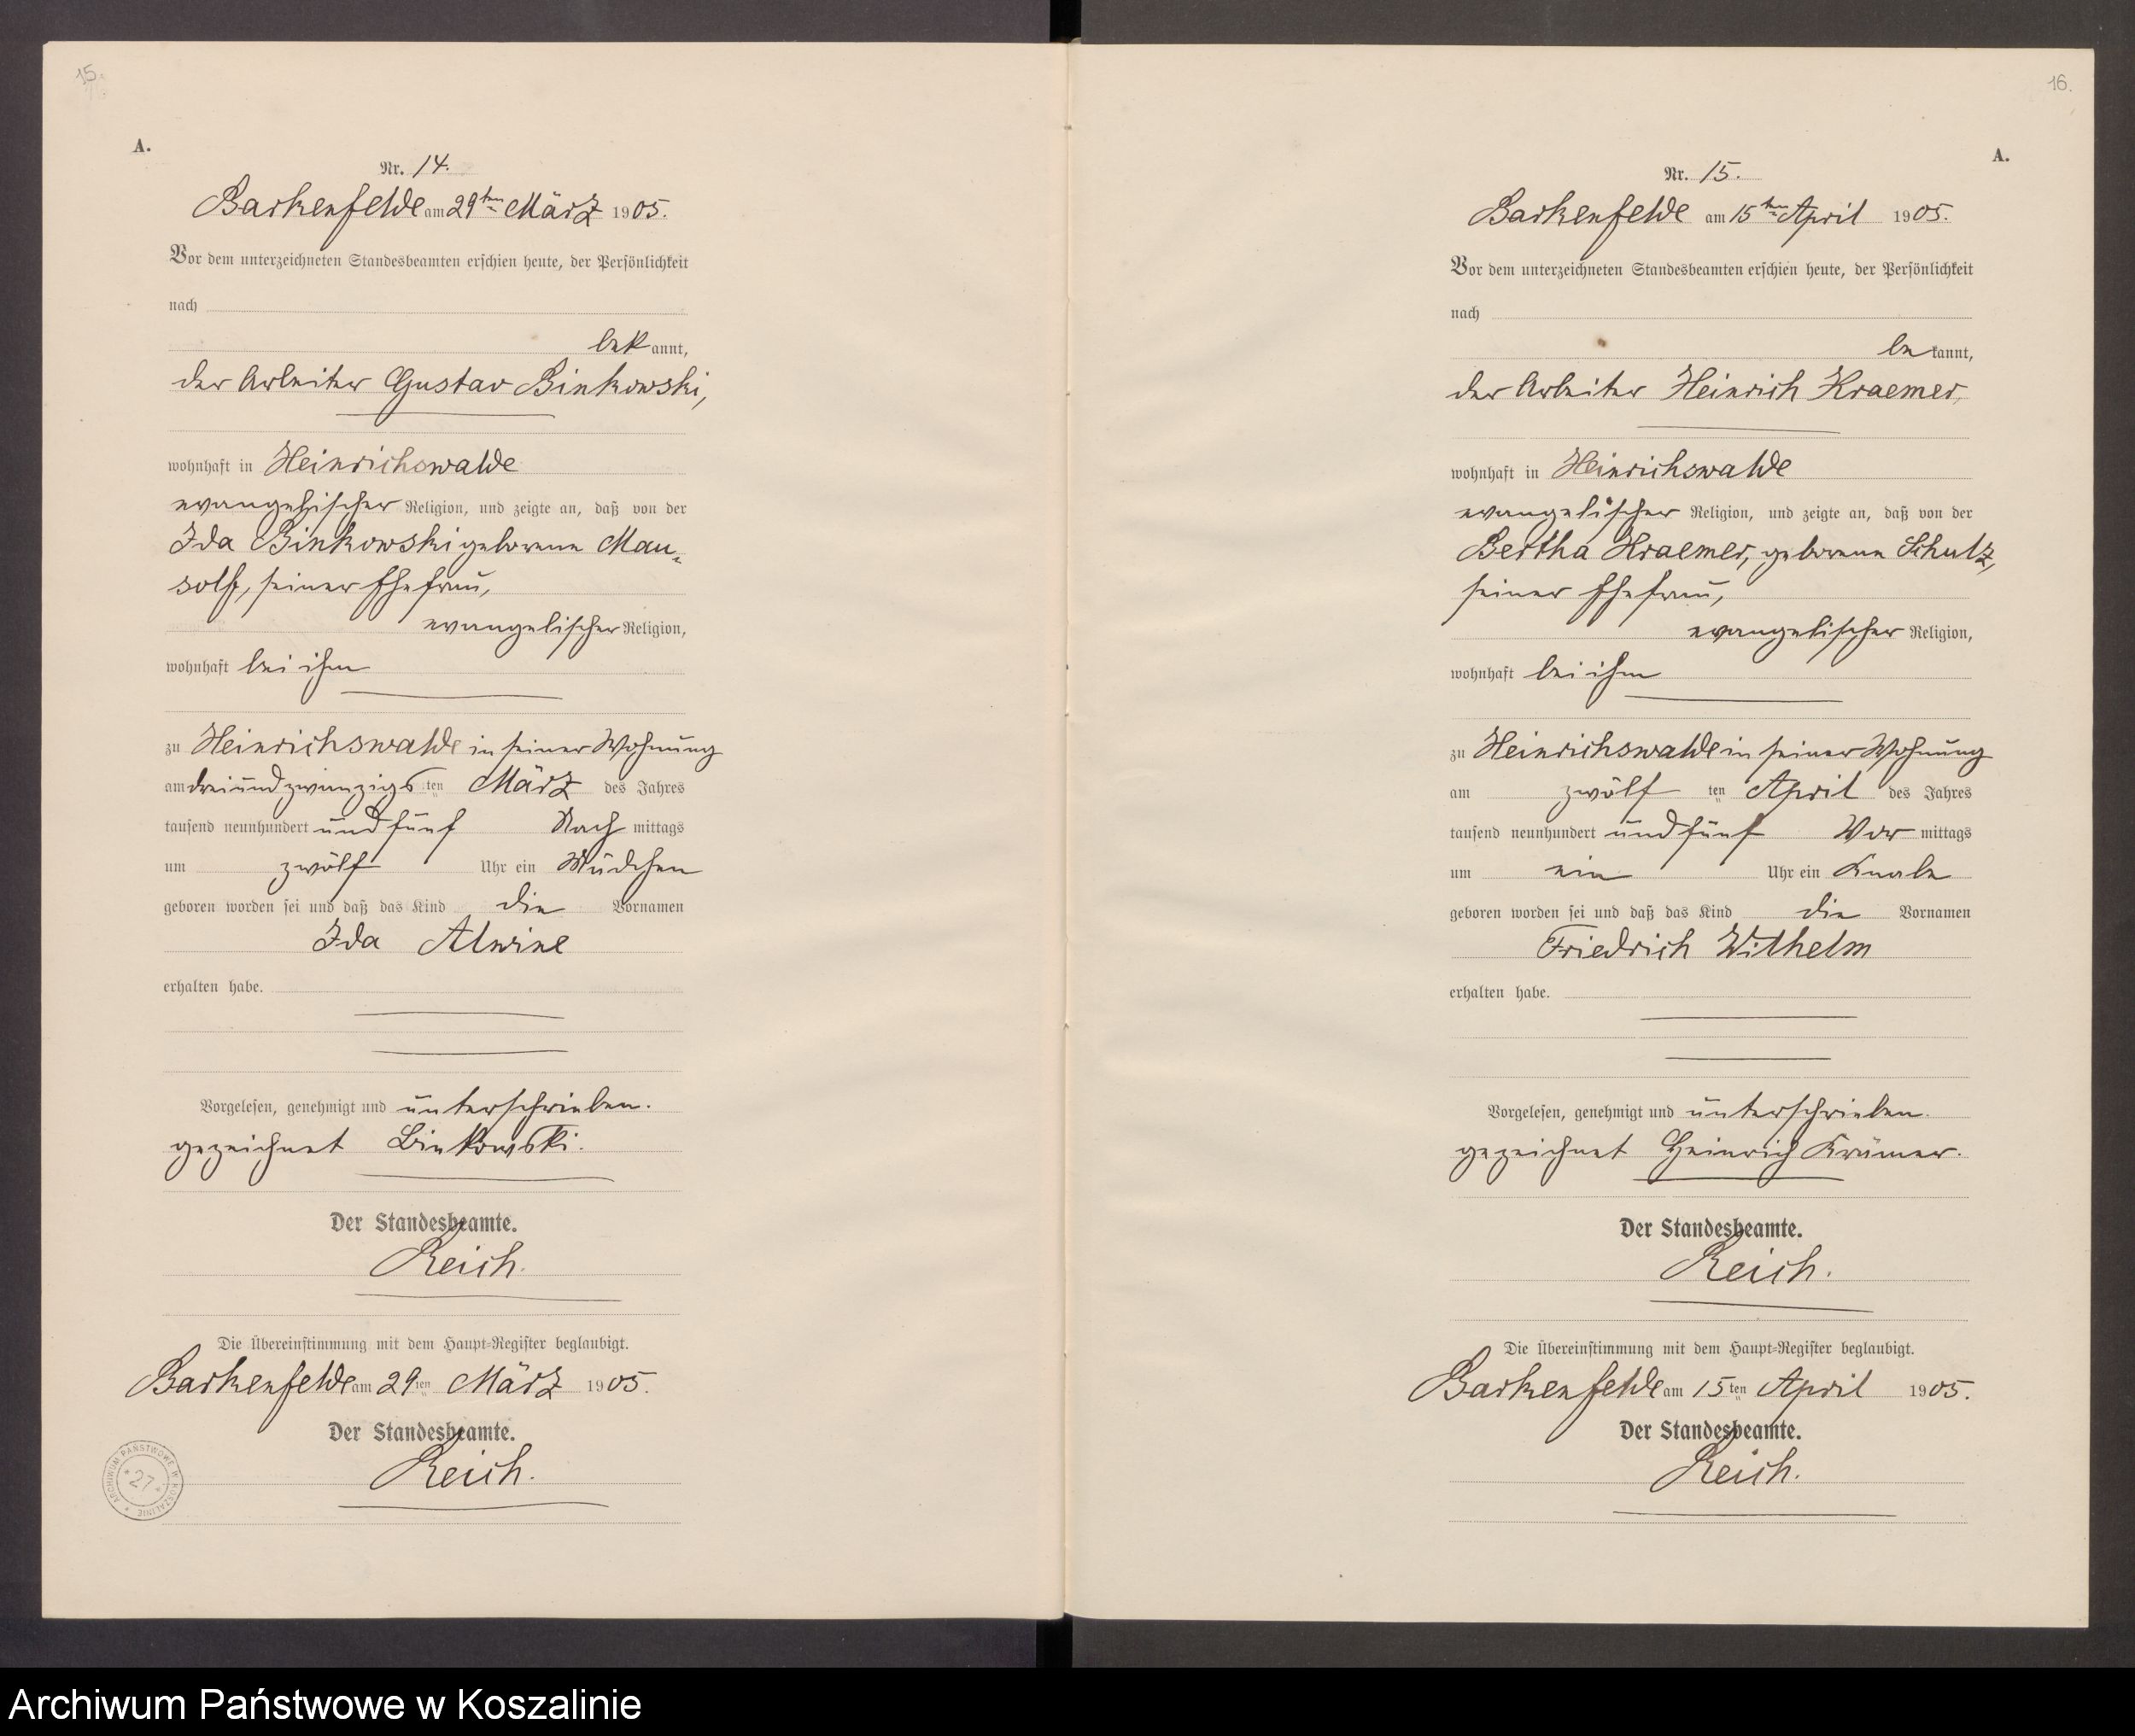 15.
A.
Nr. 14.
Barkenfelde am 29ten März 1905.
Vor dem unterzeichneten Standesbeamten erschien heute, der Persönlichkeit
nach
bekannt,
der Arbeiter Gustav Binkowski,
wohnhaft in Heinrichswalde
evangelischer Religion, und zeigte an, daß von der
Ida Binkowski geborene Mau-
solf, seiner Ehefrau,
evangelischer Religion,
wohnhaft bei ihm
zu Heinrichswalde in seiner Wohnung
am dreiundzwanzigsten März des Jahres
tausend neunhundert und fünf Nachmittags
um zwölf Uhr ein Mädchen
geboren worden sei und daß das Kind die Vornamen
Ida Alwine
erhalten habe.
Vorgelesen, genehmigt und unterschrieben.
gezeichnet Binkowski.
Der Standesbeamte.
Reich.
Die Übereinstimmung mit dem Haupt-Register beglaubigt.
Barkenfelde am 29ten März 1905.
Der Standesbeamte.
Reich.
ARCHIWUM PAŃSTWOWE W KOSZALINIE
* 27 *
16.
A.
Nr. 15.
Barkenfelde am 15ten April 1905.
Vor dem unterzeichneten Standesbeamten erschien heute, der Persönlichkeit
nach
bekannt,
der Arbeiter Heinrich Kraemer,
wohnhaft in Heinrichswalde
evangelischer Religion, und zeigte an, daß von der
Bertha Kraemer, geborene Schulz,
seiner Ehefrau,
evangelischer Religion,
wohnhaft bei ihm
zu Heinrichswalde in seiner Wohnung
am zwölften April des Jahres
tausend neunhundert und fünf Vormittags
um ein Uhr ein Knabe
geboren worden sei und daß das Kind die Vornamen
Friedrich Wilhelm
erhalten habe.
Vorgelesen, genehmigt und unterschrieben.
gezeichnet Heinrich Krämer.
Der Standesbeamte.
Reich.
Die Übereinstimmung mit dem Haupt-Register beglaubigt.
Barkenfelde am 15ten April 1905.
Der Standesbeamte.
Reich.
Archiwum Państwowe w Koszalinie